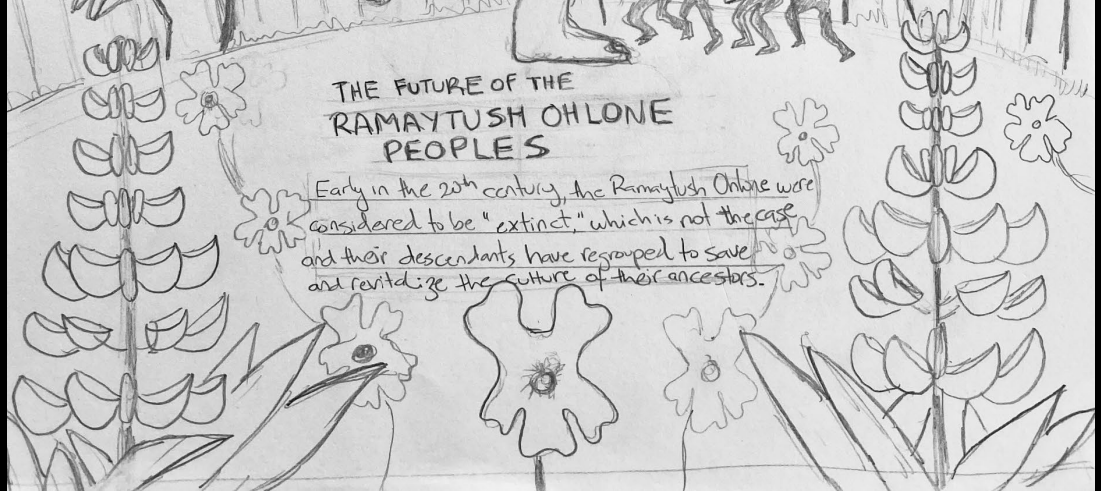 THE FUTURE OF THE
RAMAYTUSH OHLONE
PEOPLES
Early in the 20th century, the Ramaytush Ohlone were
considered to be "extinct," which is not the case
and their descendants have regrouped to save
and revitalize the culture of their ancestors.